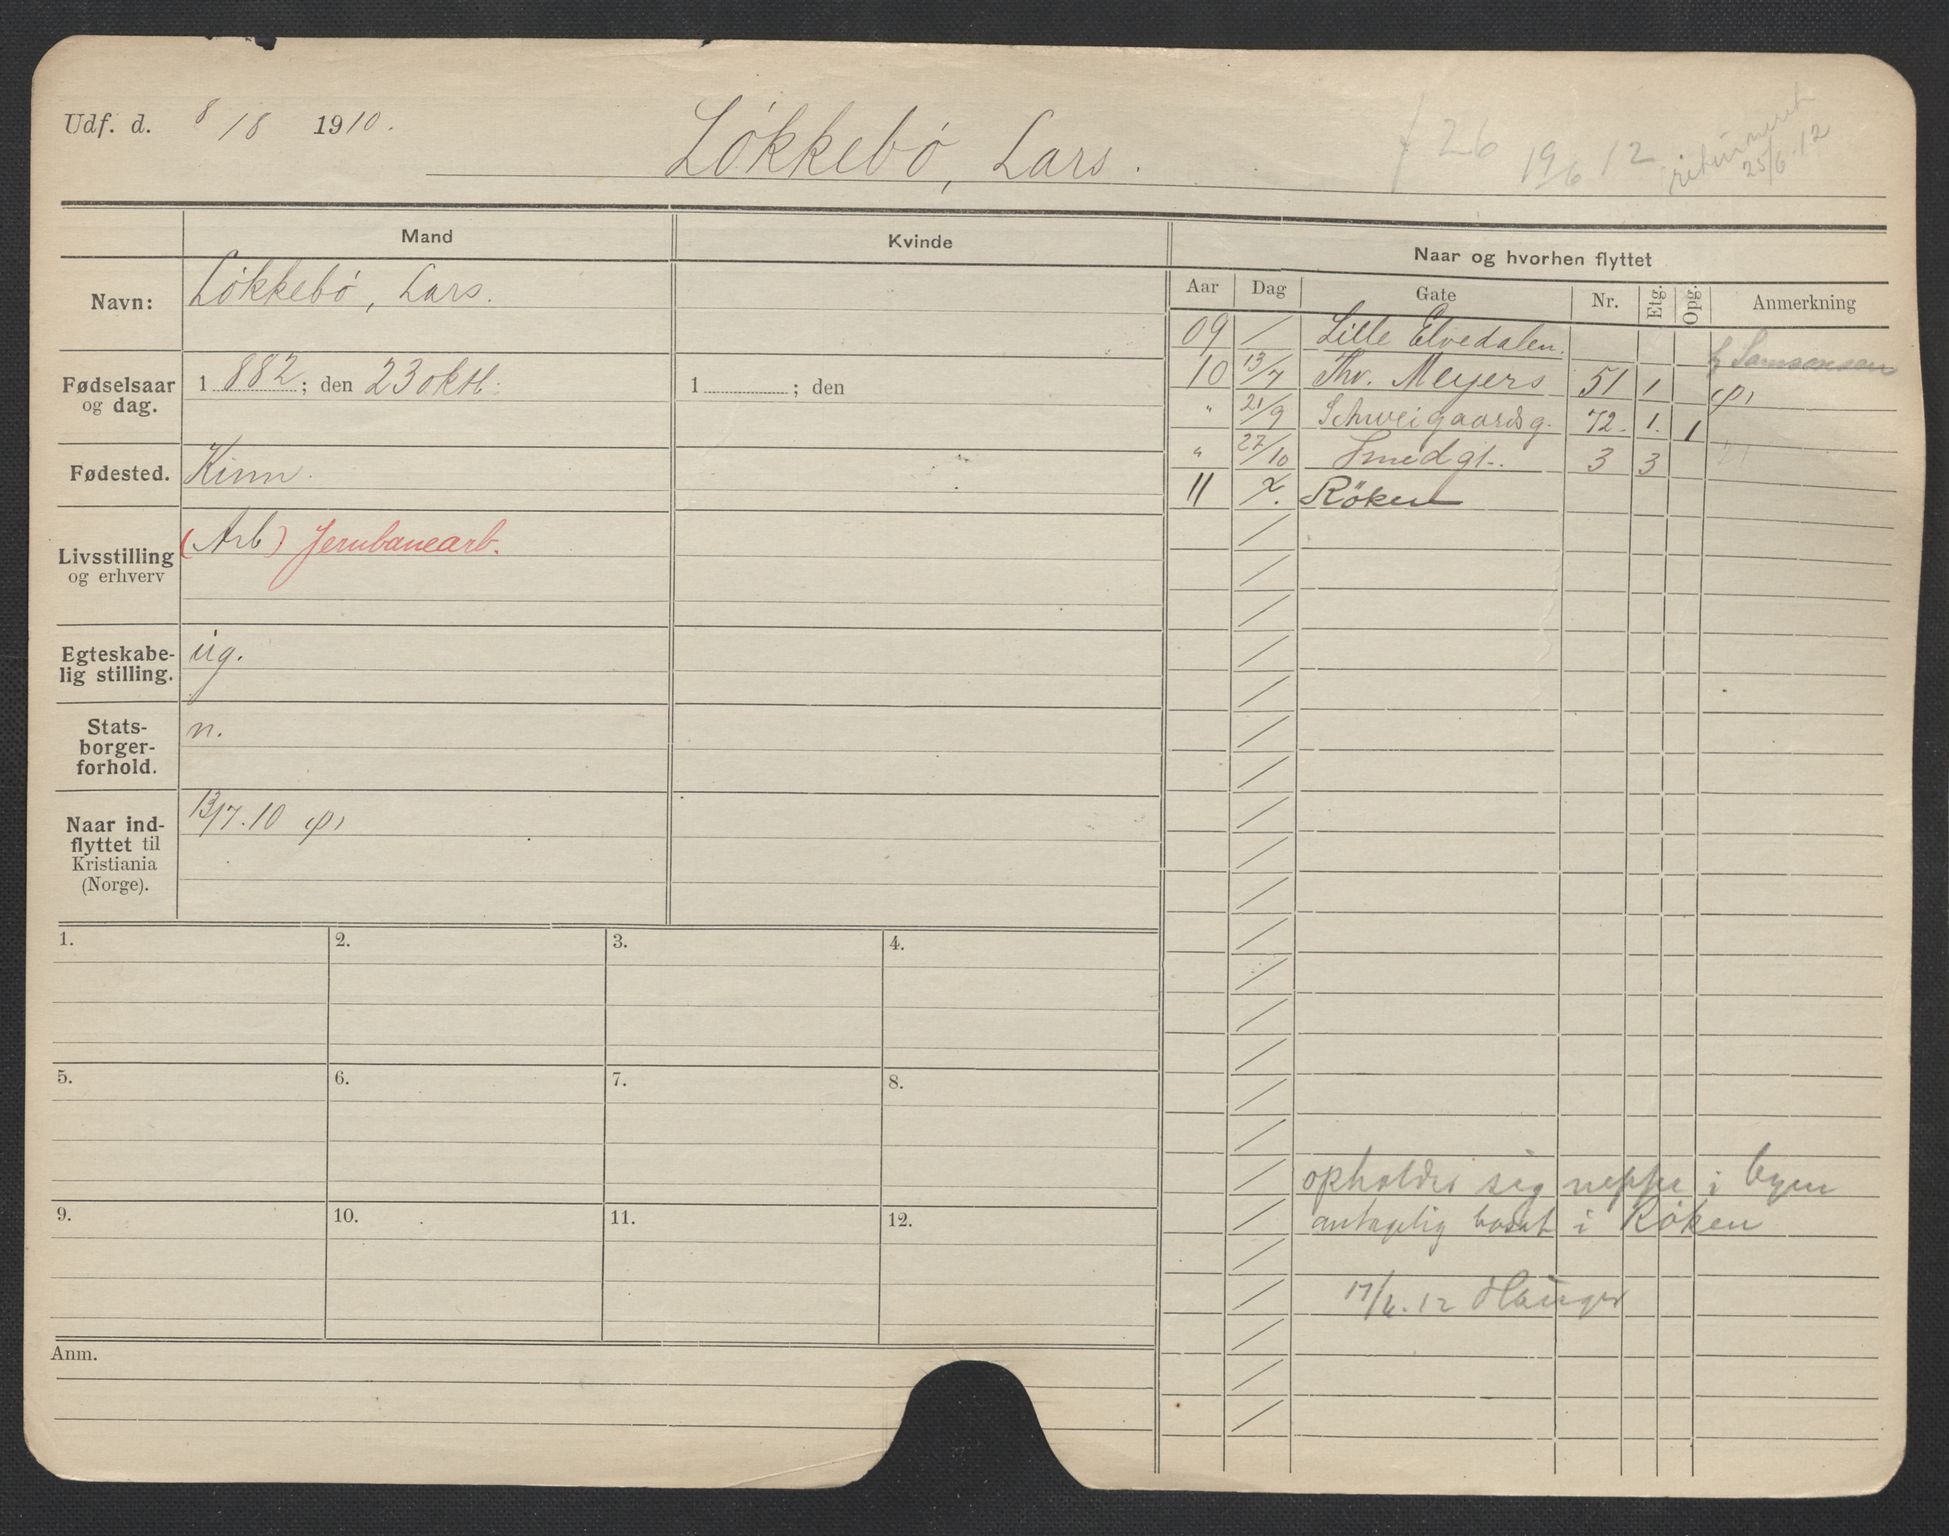 Udf. d. 8/18 1910. Løkkebö, Lars. 26 19/6 12 returneret 25/6.12
Mand Kvinde Naar og hvorhen flyttet
Aar Dag Gate Nr. Etg. Opg. Anmerkning
Navn: Løkkebö, Lars.
Fødselsaar og dag. 1882; den 23 oktb: 1 ; den
Fødested. Kinn.
Livsstilling og erhverv (Arb) Jernbanearb.
Egteskabe-
lig stilling. ug.
Stats-
borger-
forhold. n.
Naar ind-
flyttet til
Kristiania
(Norge). 13/7.10
09 / Lille Elvedalen. Samsonsen
10 13/7 Thv. Meyers 51 1
" 21/9 Schweigaardsg. 72. 1. 1
" 27/10 Smedgt. 3 3
11 Röken
1. 2. 3. 4.
5. 6. 7. 8.
9. 10. 11. 12.
opholder sig neppe i byen
antagelig bosat i Röken
17/6.12 Hauger
Anm.